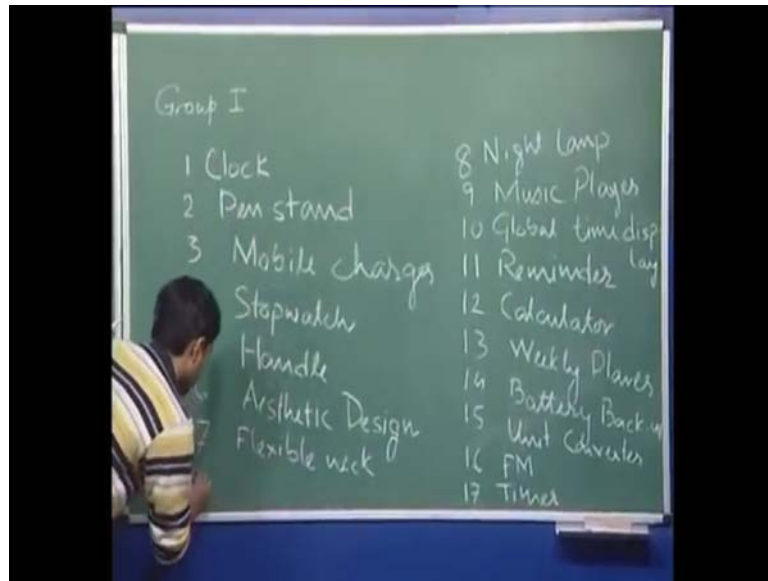 Group I
1 Clock
2 Pen stand
3 Mobile charger
Stopwatch
Handle
Aesthetic Design
7 Flexible neck
8 Night Lamp
9 Music Player
10 Global time disp
lay
11 Reminder
12 Calculator
13 Weekly
14 Battery Back
15 Unit Converter
16 FM
17 Timer